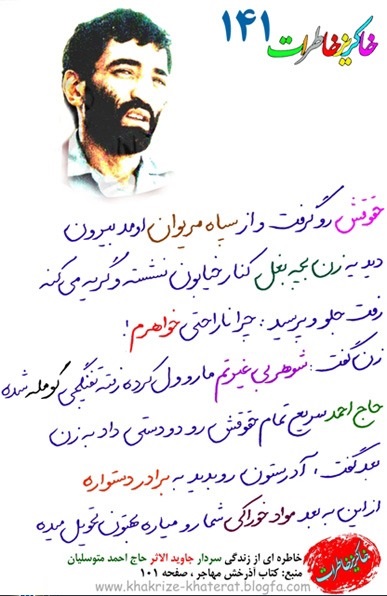 خاکریز خاطرات ۱۴۱
حقوقش رو گرفت و از سپاه مریوان اومد بیرون
دید یه زن بچه بغل کنار خیابون نشسته و گریه می کنه
رفت جلو و پرسید : چرا ناراحتی خواهرم !
زن گفت : شوهر بی غیرتم ما رو ول کرده رفته تفنگچی کومله شده
حاج احمد سریع تمام حقوقش رو دو دستی داد به زن
بعد گفت : آدرستون رو بدید به برادر دستواره
از این به بعد مواد خوراکی شما رو میاره بهتون تحویل میده
خاطره ای از زندگی سردار جاوید الاثر حاج احمد متوسلیان
منبع: کتاب آذرخش مهاجر ، صفحه ۱۰۱
www.khakrize-khaterat.blogfa.com
خاکریز خاطرات